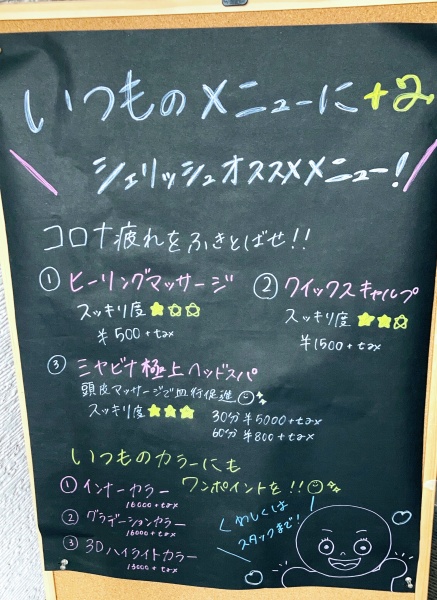 いつものメニューに+2
シェリッシュオススメメニュー!
コロナ疲れをふきとばせ!!
① ヒーリングマッサージ
スッキリ度★☆☆
¥500+tax
② クイックスキャルプ
スッキリ度★★☆
¥1500+tax
③ ミヤビナ極上ヘッドスパ
頭皮マッサージで血行促進
スッキリ度★★★
30分¥5000+tax
60分¥800+tax
いつものカラーにも
ワンポイントを!!
① インナーカラー
16000+tax
② グラデーションカラー
16000+tax
③ 3Dハイライトカラー
13000+tax
くわしくは
スタッフまで!